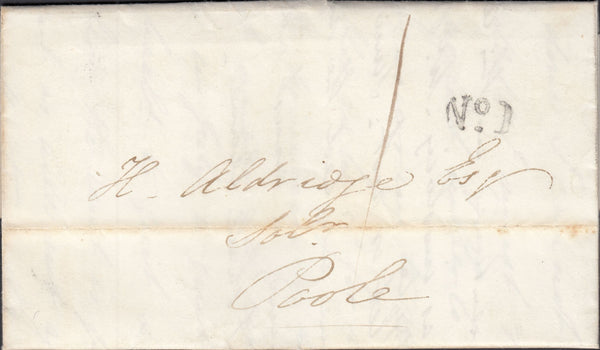 No. 1
H. Aldridge Esqr
Solr
Poole